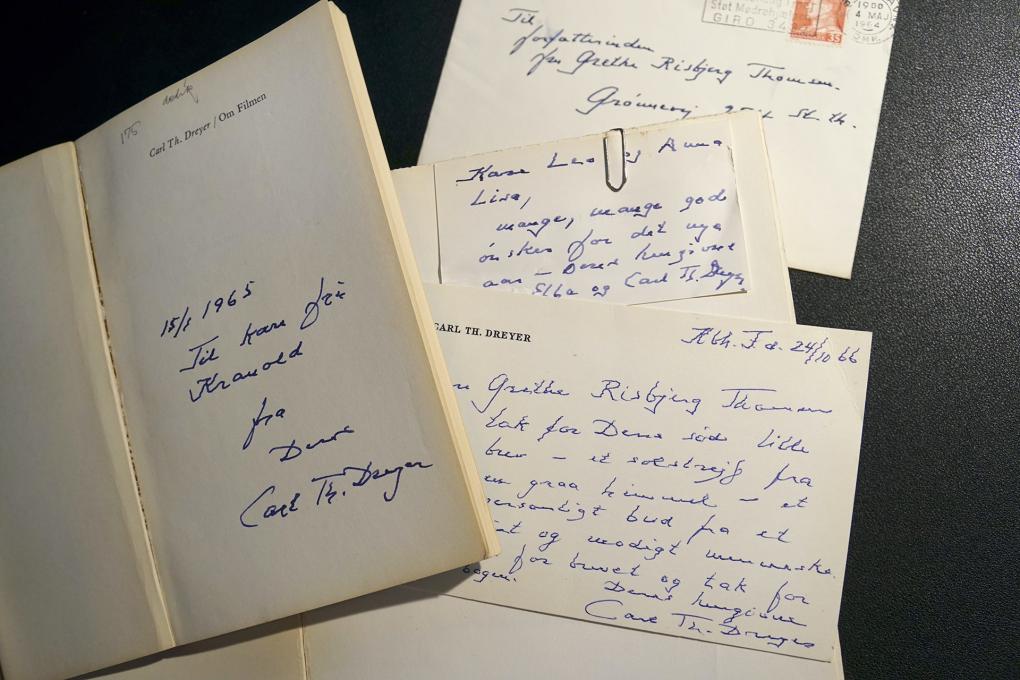 175
dedik
Carl Th. Dreyer / Om Filmen
15/1 1965
Til kære frk
Kranold
fra
Deres
Carl Th. Dreyer
GIRO 34
1900
4 MAJ
1964
35
Til
forfatterinden
fru Grethe Risbjerg Thomsen.
St. th.
Kære Leo og Anna
Lisa,
mange, mange gode
ønsker for det nye
aar – Deres hengivne
Ebba og Carl Th. Dreyer
CARL TH. DREYER
Kbh. F. d. 24/10 66
Grethe Risbjerg Thomsen
tak for Deres sød lille
brev – et solstrejf fra
graa himmel – et
personligt bud fra et
og modigt menneske.
for brevet og tak for
bogen.
Deres hengivne
Carl Th. Dreyer